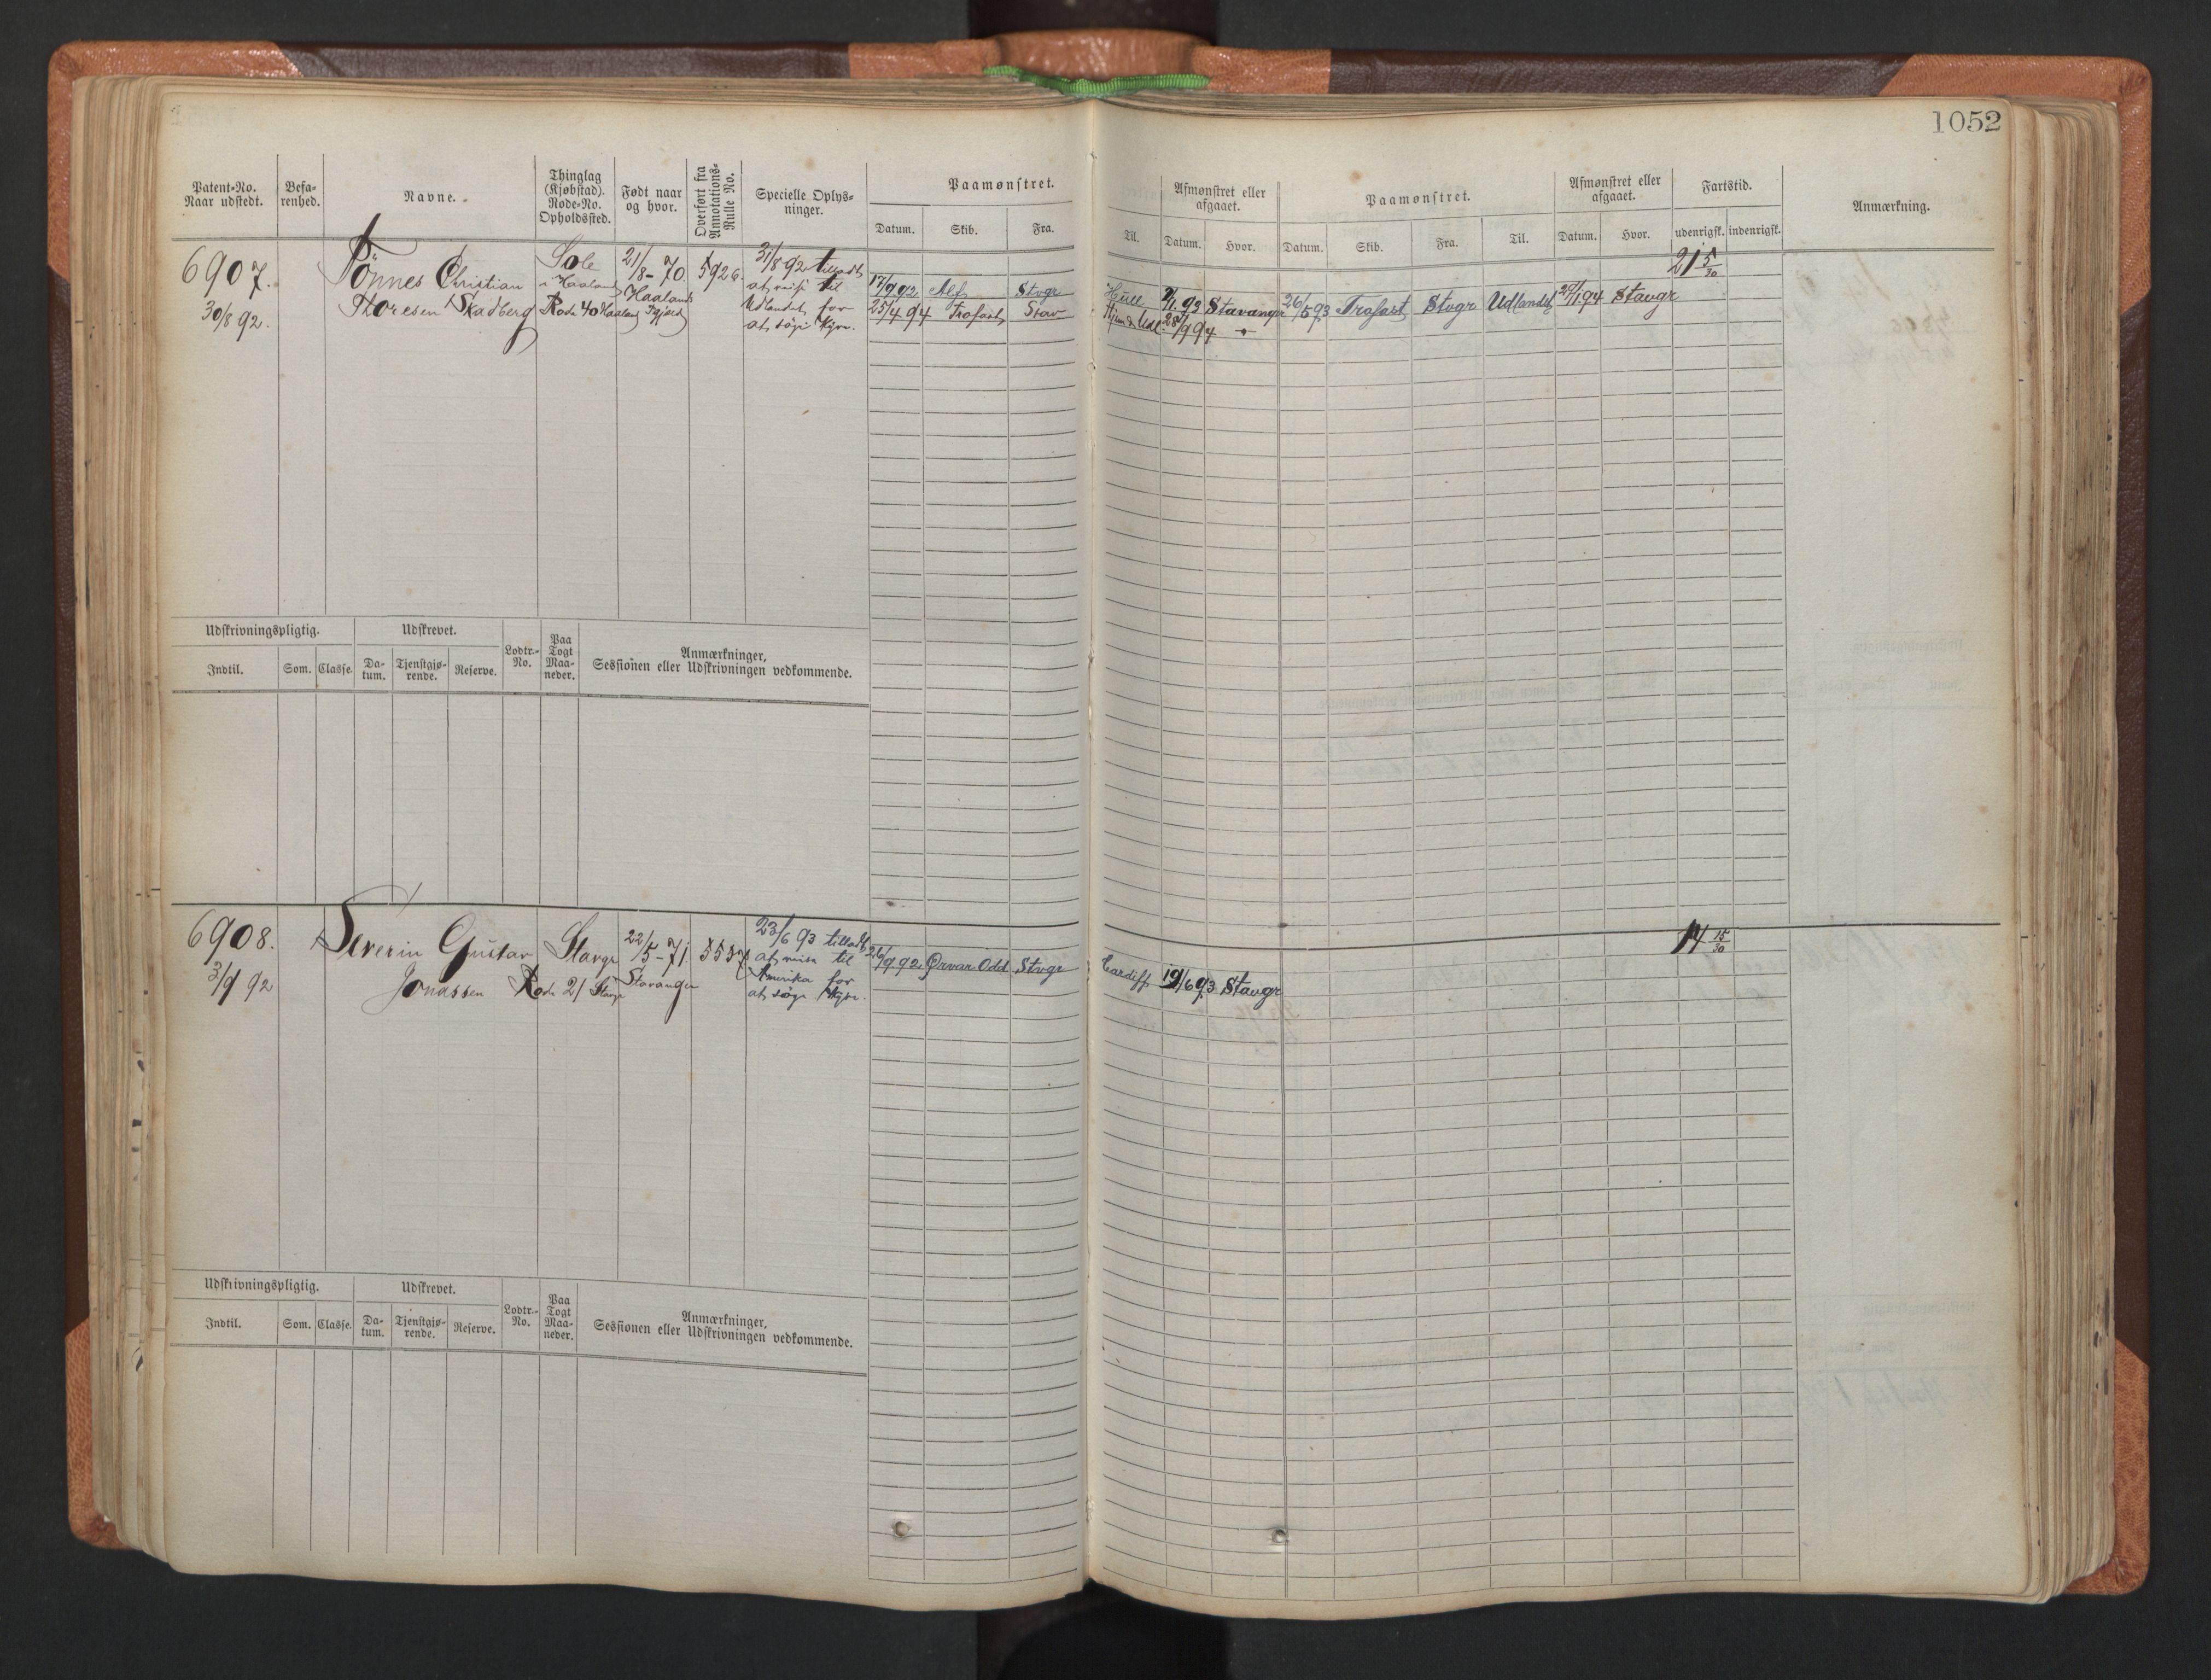 1052
Patent-No. Naar udstedt.
Befa-renhed.
Navne.
Thinglag (Kjøbstad). Rode-No. Opholdssted.
Født naar og hvor.
Overført fra Annotations-Rulle No.
Specielle Oplys-ninger.
Paamønstret.
Datum. Skib. Fra.
Til.
Afmønstret eller afgaaet.
Datum. Hvor.
Paamønstret.
Datum. Skib. Fra. Til.
Afmønstret eller afgaaet.
Datum. Hvor.
Fartstid.
udenrigsk. indenrigsk.
Anmærkning.
6907.
30/8 92.
Tönnes Christian
Thoresen Skadberg
Sole
i Haaland
Rode 40 Haaland
21/8-70.
Haaland
5926.
31/8 92 tilladt
at reise til
Udlandet for
at söge Hyre.
17/9 92 Alf Stvgr
25/4 94 Trofast Stav
Hull 2/1 93 Stavanger 26/5 93 Trofast Stvgr Udlandet 27/1 94 Stavgr
28/9 94 "
21 5/30
Udskrivningspligtig.
Indtil. Som. Classe.
Udskrevet.
Da-tum. Tjenstgjø-rende. Reserve.
Lodtr.-No.
Paa Togt Maa-neder.
Anmærkninger,
Sessionen eller Udskrivningen vedkommende.
6908.
3/9 92
Severin Gustav
Jonassen
Stavgr
Rode 21 Stavgr
22/5-71.
Stavanger
23/6 93 tilladt
at reise til
Amerika for
at söge Hyre.
26/9 92 Ørvar Odd Stvgr
Cardiff 19/6 93 Stavgr
14 15/30
Udskrivningspligtig.
Indtil. Som. Classe.
Udskrevet.
Da-tum. Tjenstgjø-rende. Reserve.
Lodtr.-No.
Paa Togt Maa-neder.
Anmærkninger,
Sessionen eller Udskrivningen vedkommende.